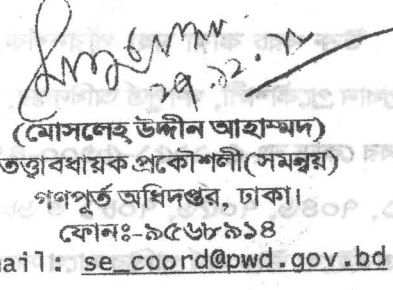 ২৭.১২.১১
(মোসলেহ্ উদ্দীন আহাম্মদ)
তত্ত্বাবধায়ক প্রকৌশলী(সমন্বয়)
গণপূর্ত অধিদপ্তর, ঢাকা।
ফোনঃ-৯৫৬৮৯১৪
mail: se_coord@pwd.gov.bd